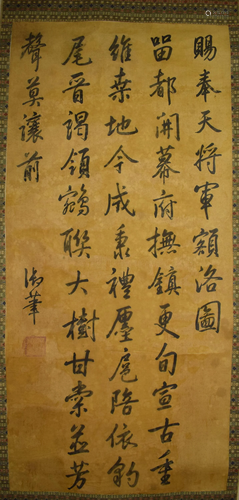 賜奉天將軍額洛圖
畱都開幕府撫鎮更旬宣古重
維桑地今成秉禮廛扈陪依豹
尾晉謁領鵷聯大樹甘棠並芳
聲莫讓前 御筆